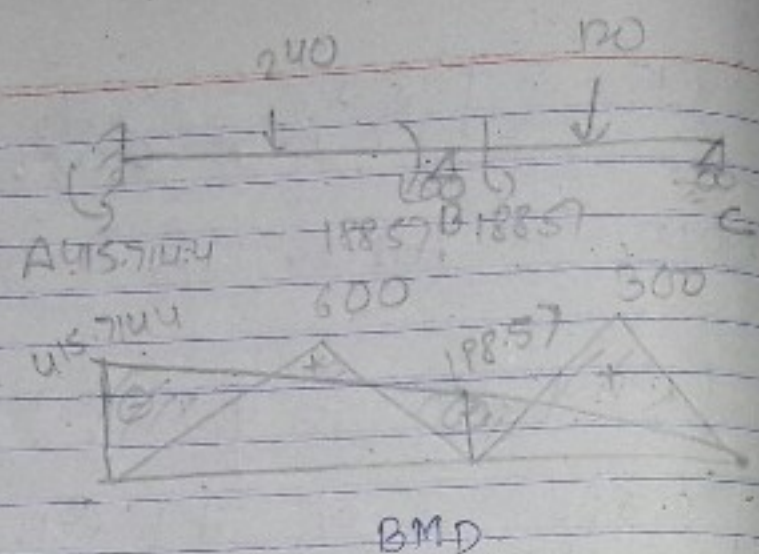 240 120
A 415.7144 188.57 B 188.57 C
600 300
415.7144 198.57
BMD